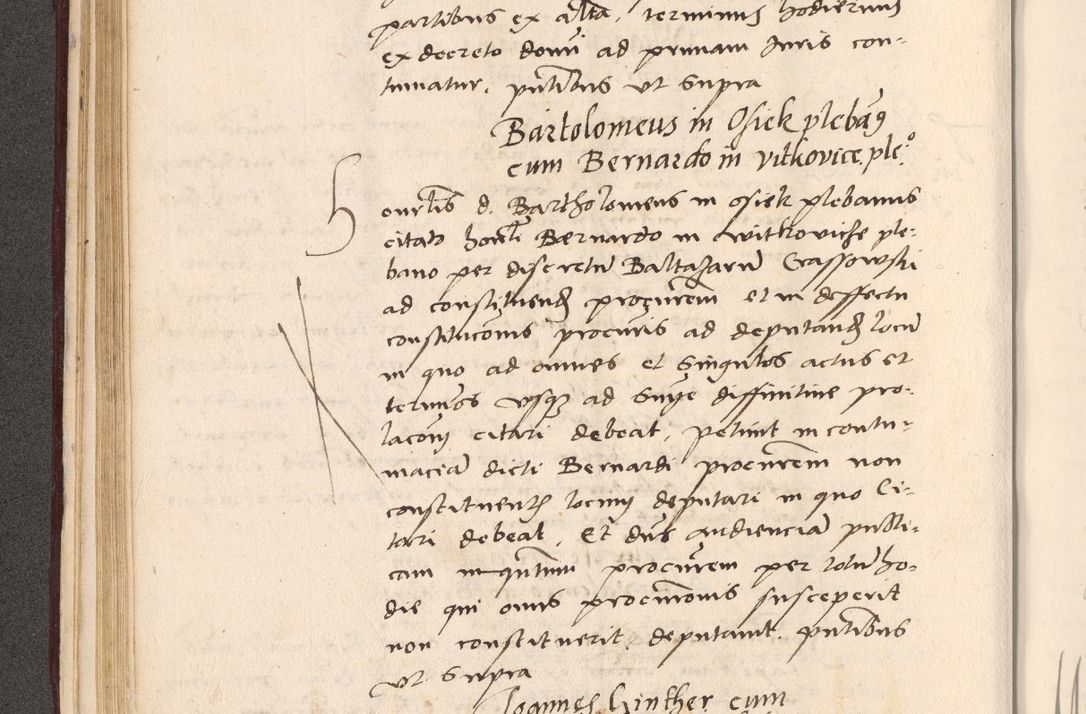 partibus ex alta, terminus hodiernus
ex decreto domi ad primam Juris con-
tinuatur, pntibus ut supra
Bartolomeus in Osiek plebang
cum Bernardo in vitkovice ple:o
Honrlis d. Bartholomeus in osiek plebanus
citato honli Bernardo in witkoviche ple-
bano per discretu Baltazaru Grassowski
ad constituend procurem et in deffectu
constituconis procuris ad deputand locu
in quo ad omnes et singulos actus et
terminos usque ad snije diffinitive pro-
lacony citari debeat, petiit in contu-
macia dicti Bernardi procurem non
constituents locum deputari in quo Ci-
tari debeat. Et dns audiencia publi-
cam inquntum procurem per totu ho-
die qui onus procuronis susceperit
non constituerit, deputauit. pntibus
ut supra
Joannes Ginther cum